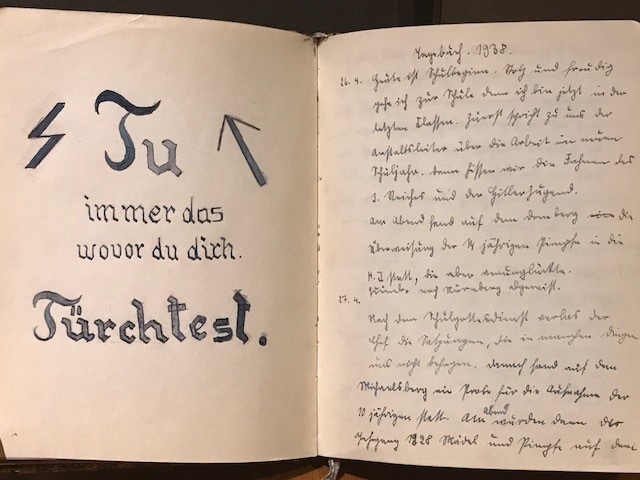 Tu
immer das
wovor du dich.
Fürchtest.
Tagebuch. 1938.
26.4. Heute ist Schulbeginn. Stolz und freudig
gehe ich zur Schule denn ich bin jetzt in der
letzten Klassen. Zuerst spricht zu uns der
Anstaltsleiter über die Arbeit im neuen
Schuljahr. Dann hissen wir die Fahnen des
3. Reiches und der Hitlerjugend.
Am Abend fand auf dem Domberg die
Überweisung der 14 jährigen Pimpfe in die
H.J statt, die aber verunglückte.
nach Nürnberg abgereist.
27.4. Nach dem Schulgottesdienst verlas der
Chef die Satzungen, die in manchen Dingen
uns nicht behagen. Danach fand auf dem
Michaelsberg ein Probe für die Aufnahme der
10 jährigen statt. Am Abend wurden dann der
Jahrgang 1928 Mädel und Pimpfe auf dem